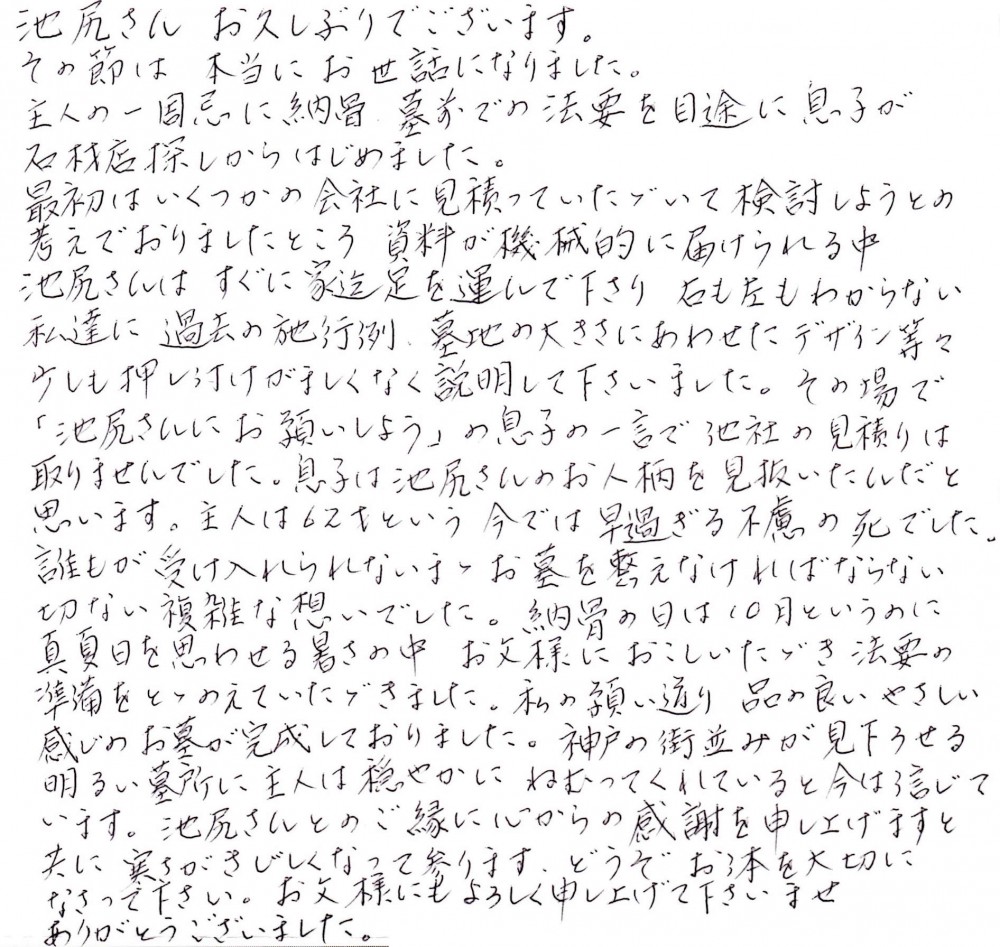 池尻さん お久しぶりでございます。
その節は 本当に お世話になりました。
主人の一周忌に納骨、墓前での法要を目途に息子が
石材店探しからはじめました。
最初はいくつかの会社に見積っていたゞいて検討しようとの
考えでおりましたところ 資料が機械的に届けられる中
池尻さんは すぐに家迄足を運んで下さり 右も左もわからない
私達に 過去の施行例、墓地の大きさにあわせたデザイン等々
少しも押し付けがましくなく説明して下さいました。その場で
「池尻さんにお願いしよう」の息子の一言で他社の見積りは
取りませんでした。息子は池尻さんのお人柄を見抜いたんだと
思います。主人は62才という 今では早過ぎる不慮の死でした。
誰もが受け入れられないまゝお墓を整えなければならない
切ない複雑な想いでした。納骨の日は10月というのに
真夏日を思わせる暑さの中 お父様におこしいたゞき法要の
準備をとゝのえていたゞきました。私の願い通り 品の良いやさしい
感じのお墓が完成しておりました。神戸の街並みが見下ろせる
明るい墓所に主人は穏やかに ねむってくれていると今は信じて
います。池尻さんとのご縁に心からの感謝を申し上げますと
共に 寒さがきびしくなって参ります、どうぞ お体を大切に
なさって下さい。お父様にもよろしく申し上げて下さいませ
ありがとうございました。